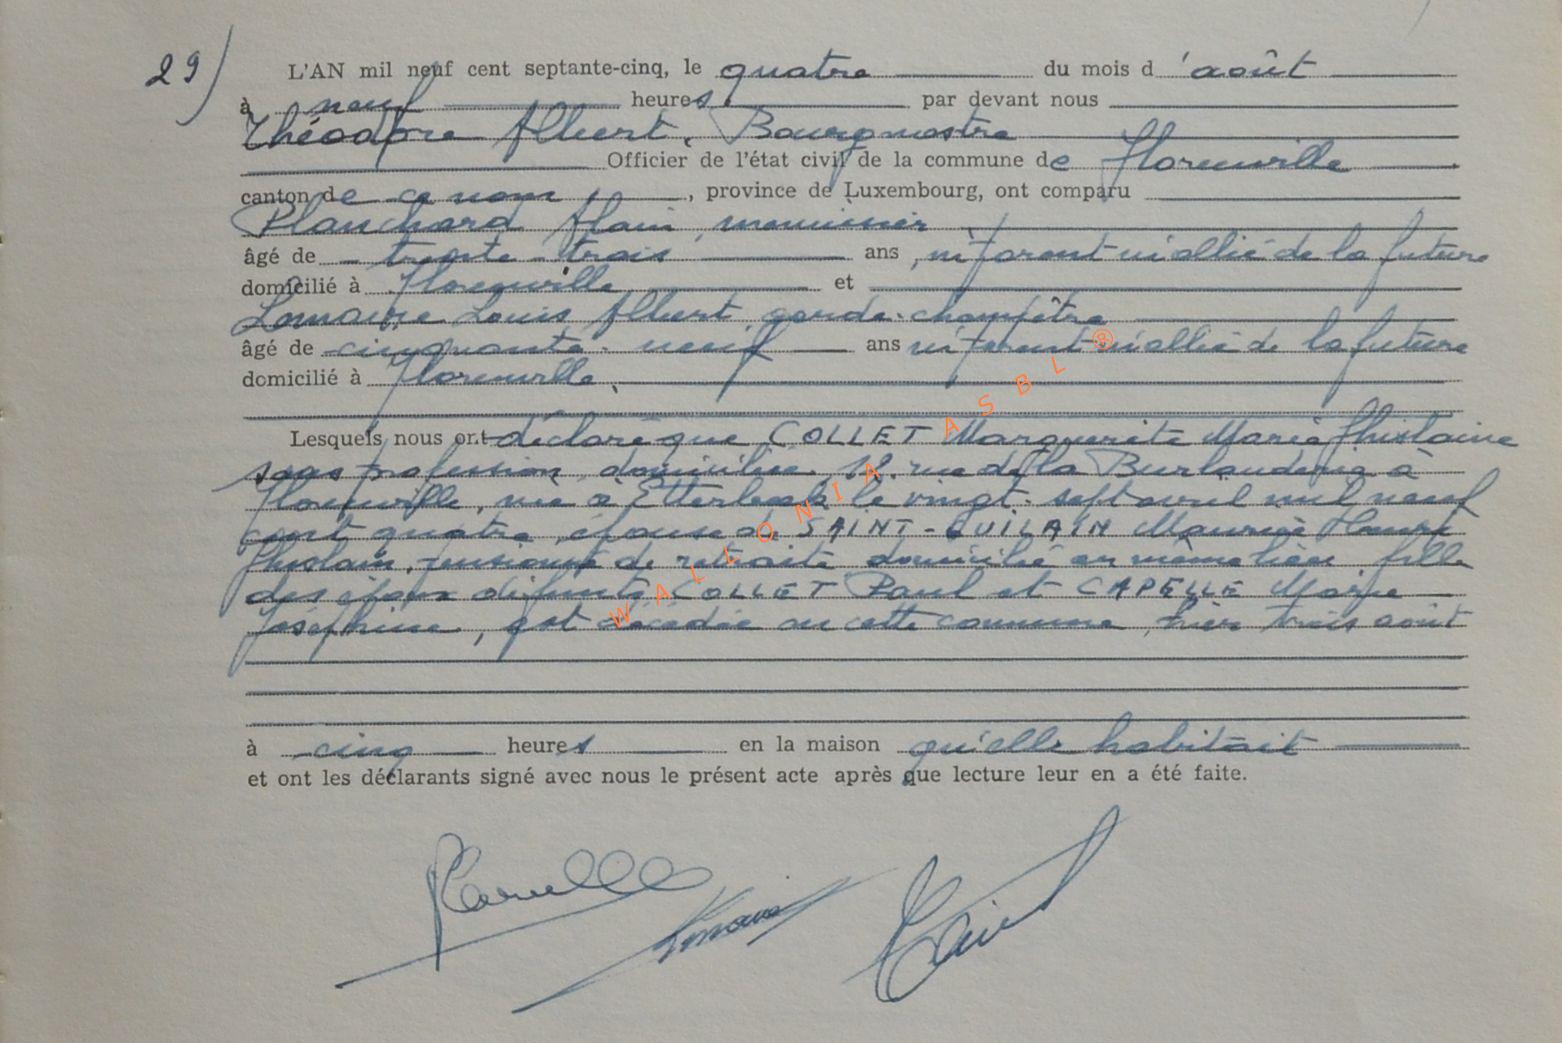 29)
L'AN mil neuf cent septante-cinq, le quatre du mois d'août
à neuf heures par devant nous
Théodore Albert, Bourgmestre
Officier de l'état civil de la commune de Florenville
canton de ce nom, province de Luxembourg, ont comparu
Planchard Alain, menuisier
âgé de trente-trois ans, ni parent ni allié de la future
domicilié à Florenville et
Lemaire Louis Albert, garde-champêtre
âgé de cinquante-neuf ans ni parent ni allié de la future
domicilié à Florenville,
Lesquels nous ont déclaré que COLLET Marguerite Marie Ghislaine
sans profession, domiciliée 18, rue de la à
Florenville, née à Etterbeek le vingt-sept avril mil neuf
cent quatre, épouse de SAINT-GUILAIN Maurice Henri
Ghislain, pensionné de retraite domicilié en même lieu fille
des époux défunts COLLET Paul et CAPELLE Marie
Joséphine, est décédée en cette commune, hier trois août
à cinq heures en la maison qu'elle habitait
et ont les déclarants signé avec nous le présent acte après que lecture leur en a été faite.
WALLONIA ASBL ®